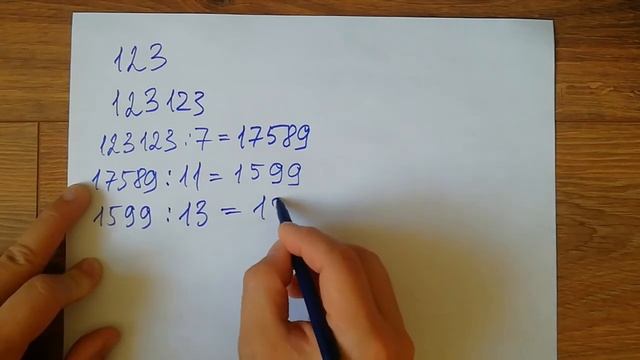 123
123123
123123:7=17589
17589:11=1599
1599:13=1